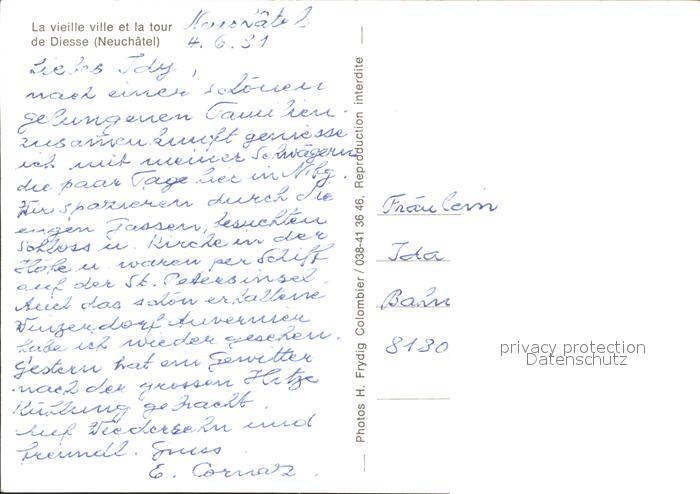 La vieille ville et la tour
de Diesse (Neuchâtel)
Neuchâtel
4. 6. 81
Liebes Idy,
nach einer schönen
gelungenen Familien-
zusammenkunft geniesse
ich mit meiner Schwägerin
die paar Tage hier in Nbg.
Wir spazieren durch die
engen Gassen, besuchten
Schloss u. Kirche in der
Höhe u. waren per Schiff
auf der St. Petersinsel.
Auch das schön erhaltene
Winzerdorf Auvernier
habe ich wieder gesehen.
Gestern hat ein Gewitter
nach der grossen Hitze
Kühlung gebracht.
Auf Wiedersehn und
freundl. Gruss
E. Cornaz.
Photos H. Frydig Colombier / 038-41 36 46, Reproduction interdite
Fräulein
Ida
Bahn
8130
privacy protection
Datenschutz